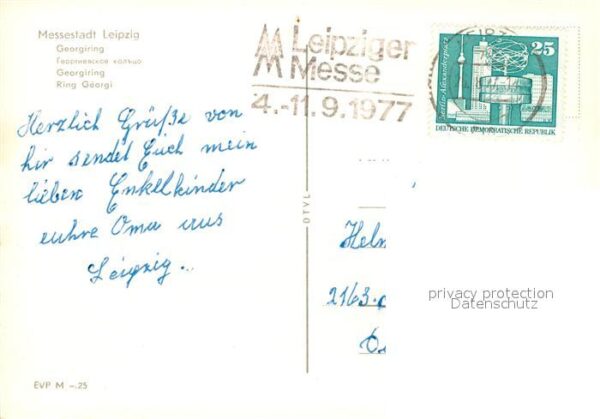 Messestadt Leipzig
Georgiring
Георгиевское кольцо
Georgiring
Ring Georgi
Leipziger
Messe
4.-11.9.1977
25
Berlin-Alexanderplatz
DEUTSCHE DEMOKRATISCHE REPUBLIK
Herzlich Grüße von
hir sendet Euch mein
lieben Enkelkinder
euhre Oma aus
Leipzig..
DTVL
Helm
2163
privacy protection
Datenschutz
EVP M -.25